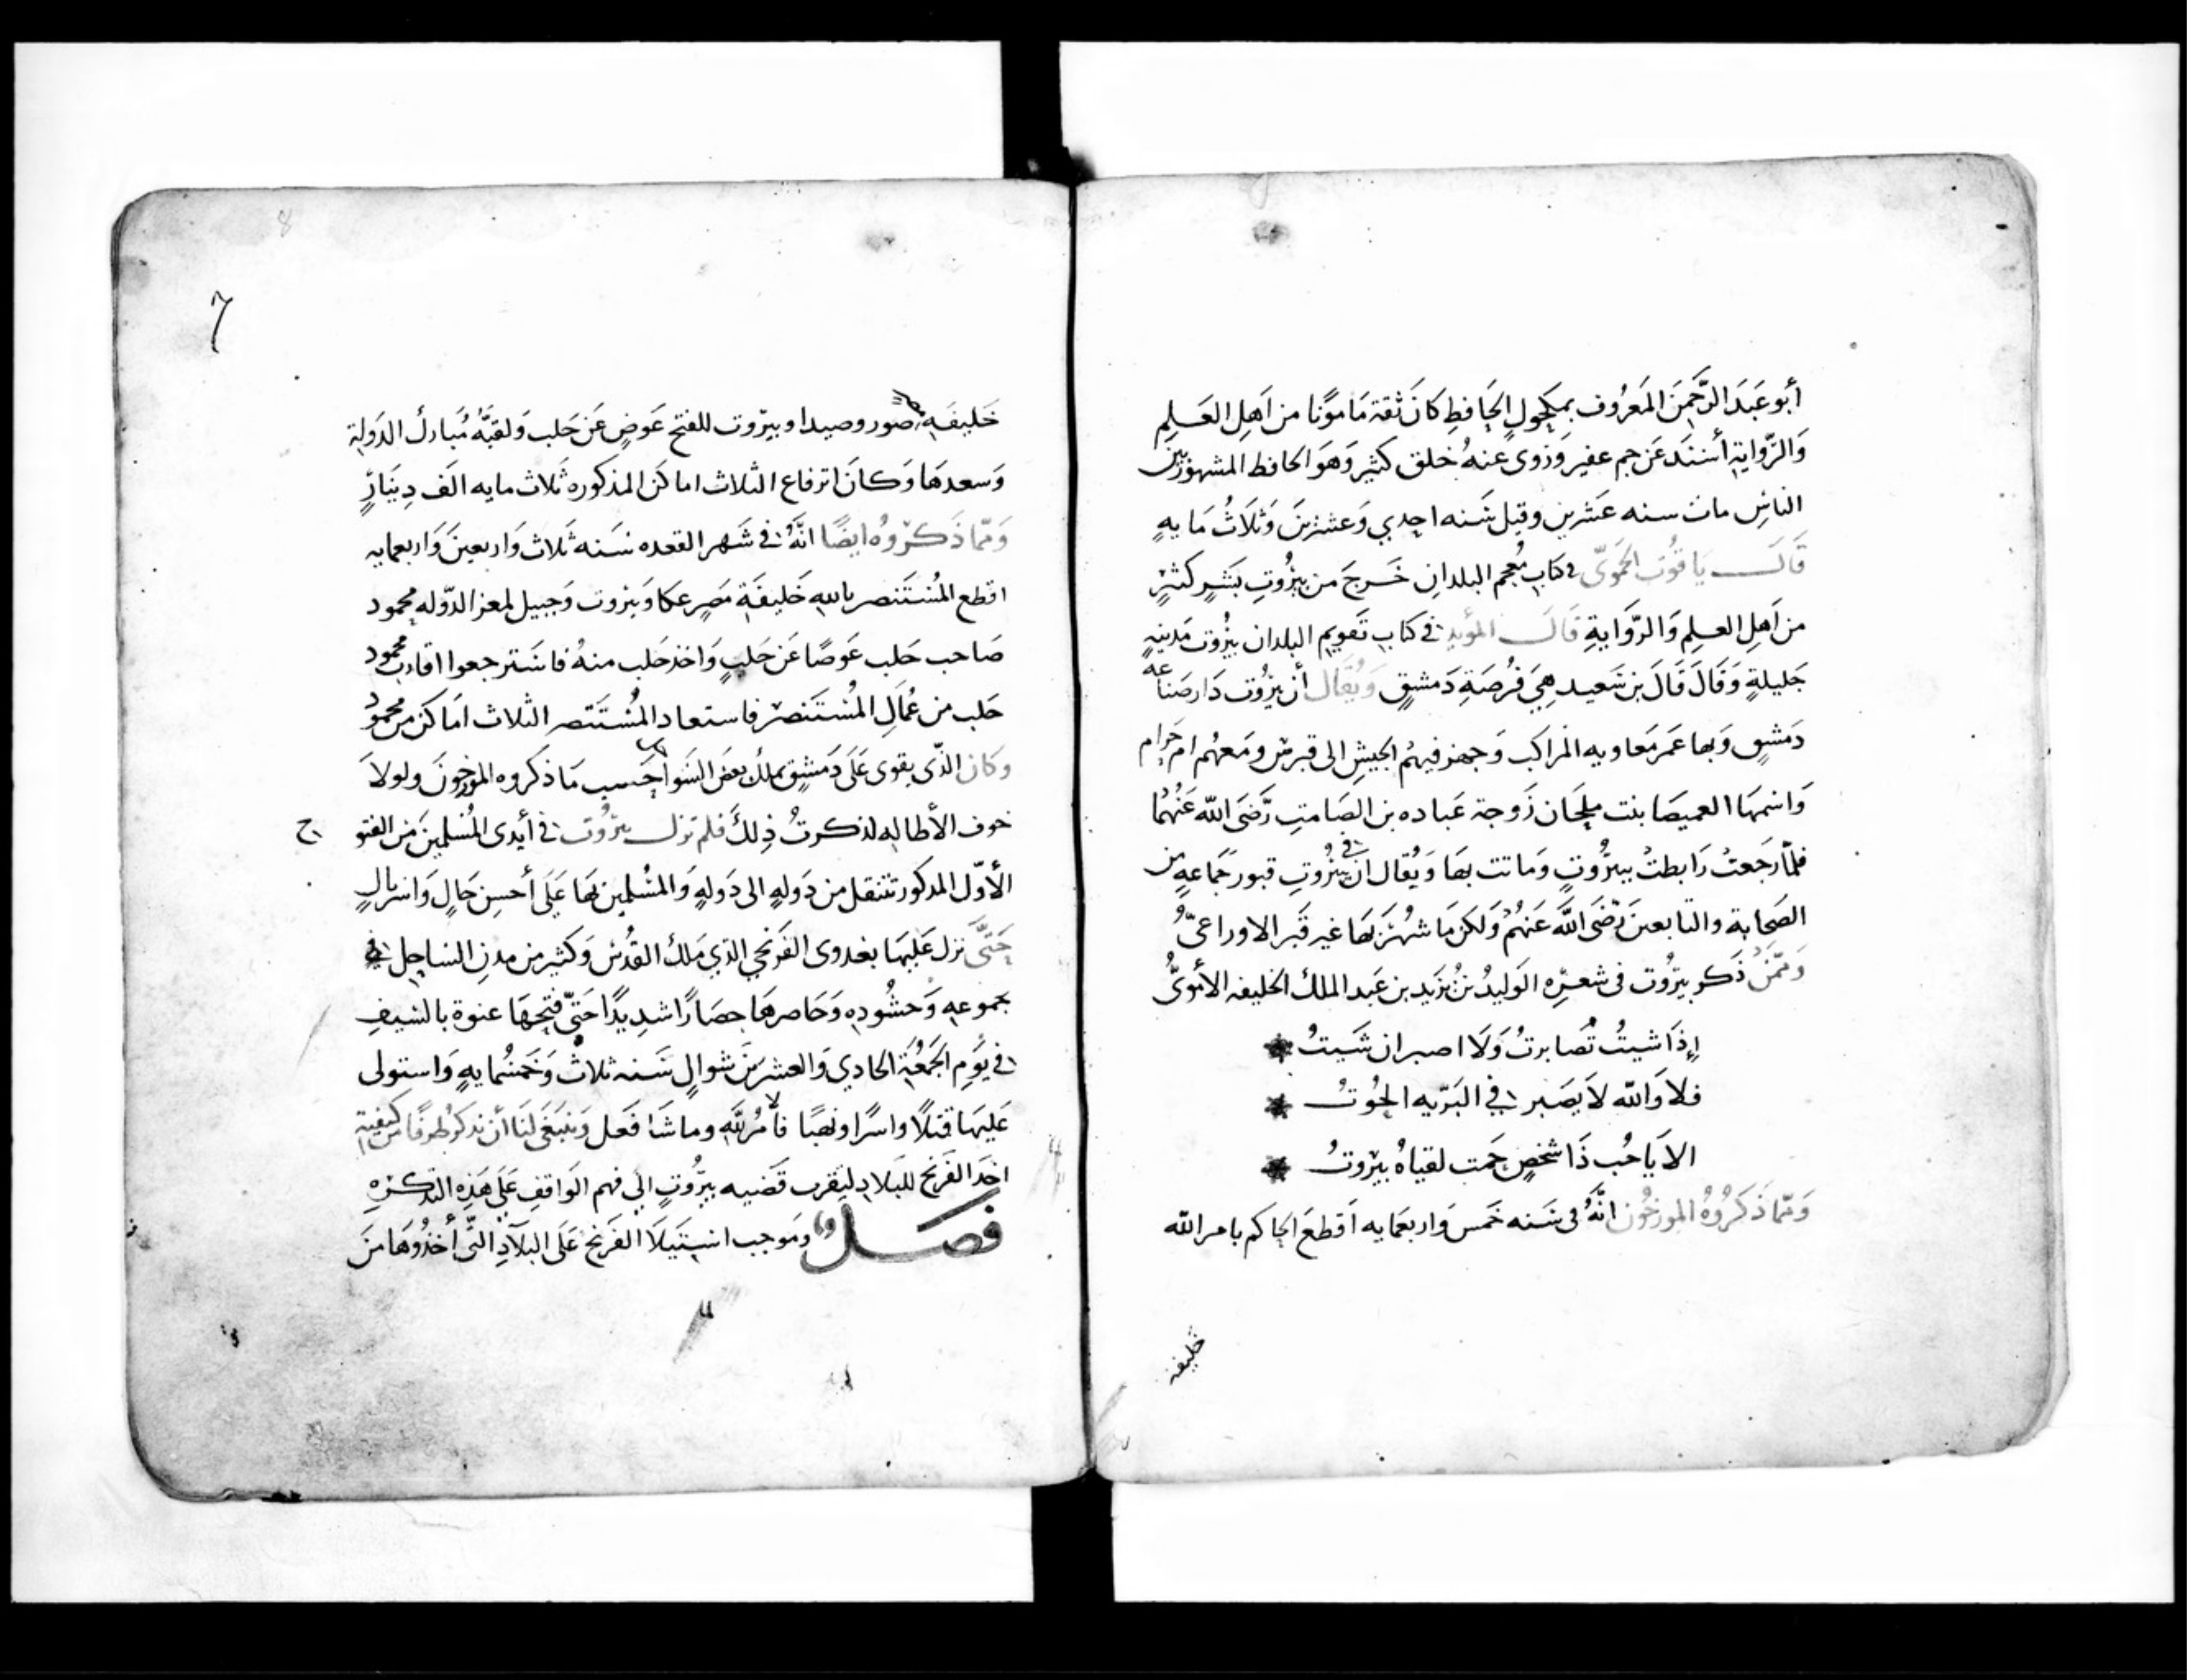 أبو عَبدَ الرَّحمنَ المَعرُوف بمكحولٍ الحَافظِ كانَ ثقة مَامونًا من اَهلِ العَـلمِ
وَالرّوايةِ أسنَندَ عَن جم غفير وَرَوى عنهُ خلق كثير وَهوَ الحافظ المشهور بين
الناسِ مات سنه عَشرين وقيل سَنه احدي وَعشرينَ وَثلَاثُ مَايهٍ
قَالَ يَاقوُت الحَمَويّ في كتاب مُعجم البلدانِ خَرجَ من بَيرُوتِ بَشَرٍ كثيرٍ
من اَهلِ العـلمِ وَالرّوَايةِ قَالَ المؤيد في كتابِ تَقويم البلدان بيرُوت مَدينهٍ
جَليلةٍ وَقَالَ قَالَ بن سَعيد هِيَ فُرضَةِ دَمشقٍ وَيُقَال أن بيرُوت دَار صَناعه
دَمشقٍ وَبها عَمر مَعاويه المراكب وَجهز فيهمُ الجيشِ الى قبرس ومَعهُم ام حَرَام
وَاسمهَا العميصَا بنت ملحَان زَوجة عَباده بن الصَامتِ رَّضَى اللّه عَنُهمُا
فلمّا رَجَعتْ رَابطتْ ببيرُوتٍ وَماتت بهَا وَيُقال ان في بيرُوتِ قبور جَمَاعهٍ من
الصَحابة والتابعينَ رَضَى اللَّه عَنهُمُ وَلكن مَا شُهرَ بَهَا غير قَبر الاوزاعىّ
وَممّن ذَكر بيرُوت فى شعـرِه الوَليدُ بنُ يَزيد بن عَبد الملك الخليفه الأمَوىُّ
إذَا شيتُ تُصَابرتُ وَلَا اصبر ان شَيتُ
فلا وَاللّه لاَ يصَبر في البَرّيه الحُوتُ
الا يَا حُب ذَا شخصٍ حَمت لقياهُ بيرُوتُ
وَممّا ذَكَرُوهُ المورخُون انَّهُ فى سَنه خَمس وَاربعَمايه اَقطعَ الحاكم بامر اللّه
خليفه
7
خَليفَه مصر صور وصيدا وبيرّوت للفتح عَوضٍ عَن حَلب وَلقبَّهُ مُبارك الدَولة
وَسعدهَا وَكانَ ارتفاع الثلاث اماكن المذكوره ثَلاث مايه الَف دِينَارٍ
وَممّا ذَكرُوهُ ايضًا انَّهُ في شَهر القعده سَنه ثَلاث وَاربعينَ وَاربعمايه
اقطع المُستَنصر بالله خَليفَة مَصرٍ عكا وَبيروت وَجبيل لمعز الدّوله محمود
صَاحب حَلب عَوضًا عَن حَلبٍ وَاخذ حَلب منهُ فاسَترجعوا اقارب محمود
حَلب من عُمالِ المُستَنصر فاستعاد المُستَنصر الثلاث اَماكن من محمود
وَكان الذّى يقوى عَلَى دَمشق يملك بعض السَواحل حَسب مَا ذكروه المورخونَ ولولاَ
خوف الأطاله لذكرتُ ذِلكَ فلم تزل بيرُوت في أيدى المُسلمينَ من الفتوح
الأوّل المذكور تنتقل من دَولهٍ الى دَولهٍ وَالمسُلمين بهَا عَلَى أحسن حَالٍ
حَتَّى نزل عَليهَا بغدوى الفَرنجي الذي مَلكَ القُدس وَكثير من مدنِ السَاحِل في
جموعهِ وَحشُودِه وَحَاصرهَا حصَارًا شدِيدًا حَتّى فتحهَا عنوة بالسَيفِ
في يَومِ الجمُعَة الحادي وَالعشرينَ شوالٍ سَنه ثلاث وَخَمسُمايهٍ وَاستولى
عَليهَا قتلًا واسرًا ونهبًا فالأمُر للّهِ وما شَا فَعَل وَينبَغَى لنَا أن نَذكرُ طرفًا من كيفيته
اخذ الفَرَنج للبَلادِ ليقَرب قَضيه بيرُّوتٍ الي فهم الوَاقفِ عَلَى هَذهِ التذكـرهِ
فصَـل ومَوجب استيَلَا الفَرَنج عَلَى البلَادِ التَّى أخذُوهَا منَ